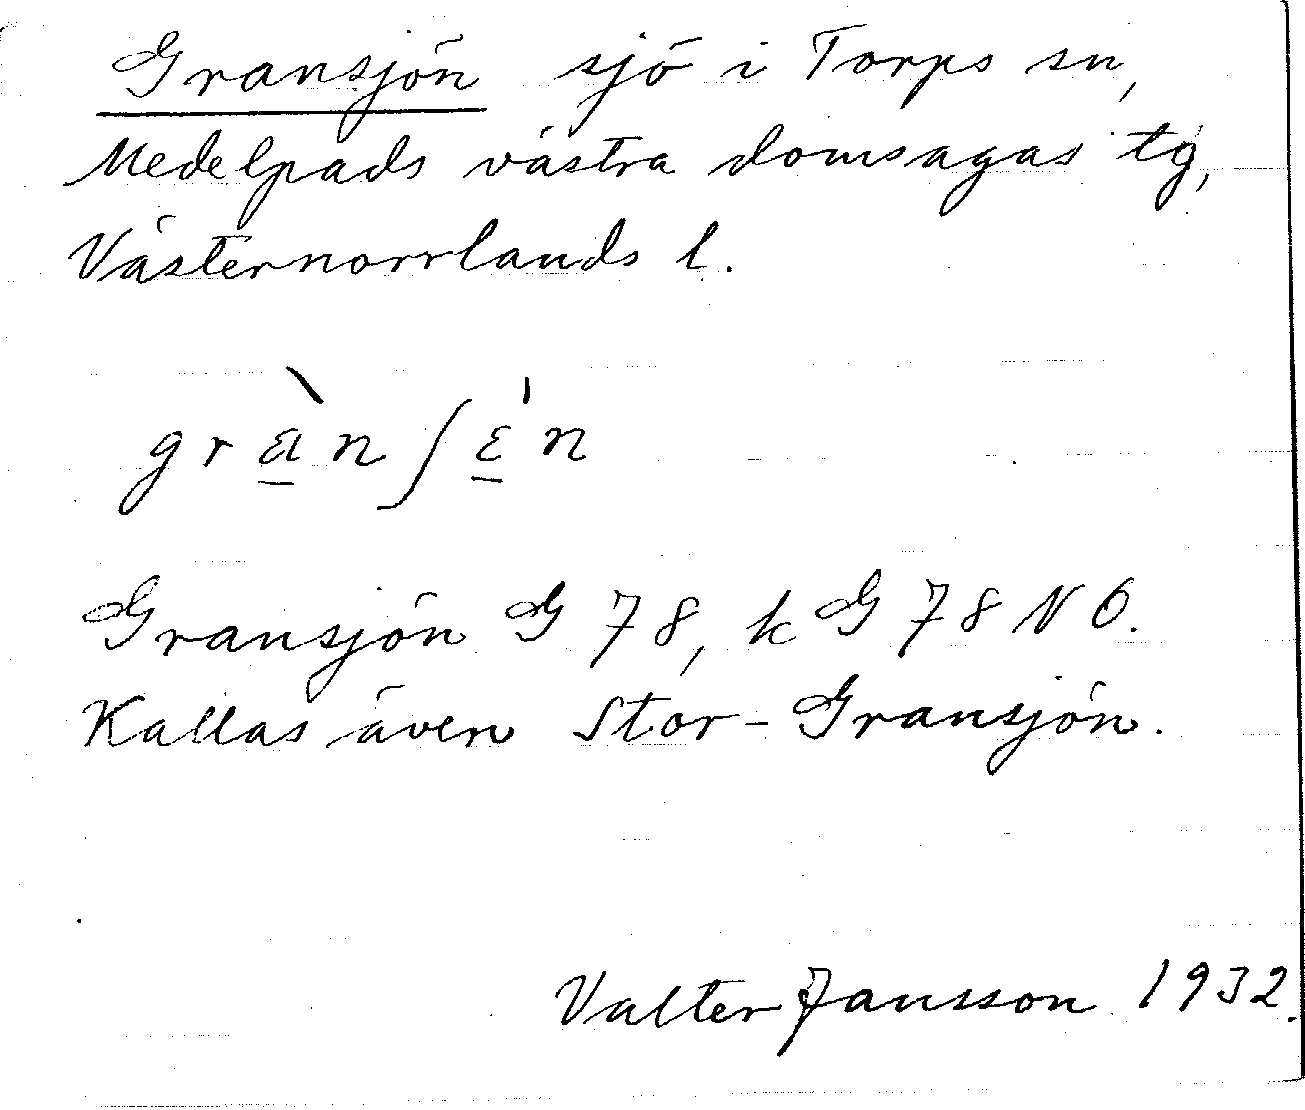 Gransjön sjö i Torps sn,
Medelpads västra domsagas tg,
Västernorrlands l.
grа̱̀nʃɛ̱̍n
Gransjön G 78, k G 78 NO.
Kallas även Stor-Gransjön.
Valter Jansson 1932.